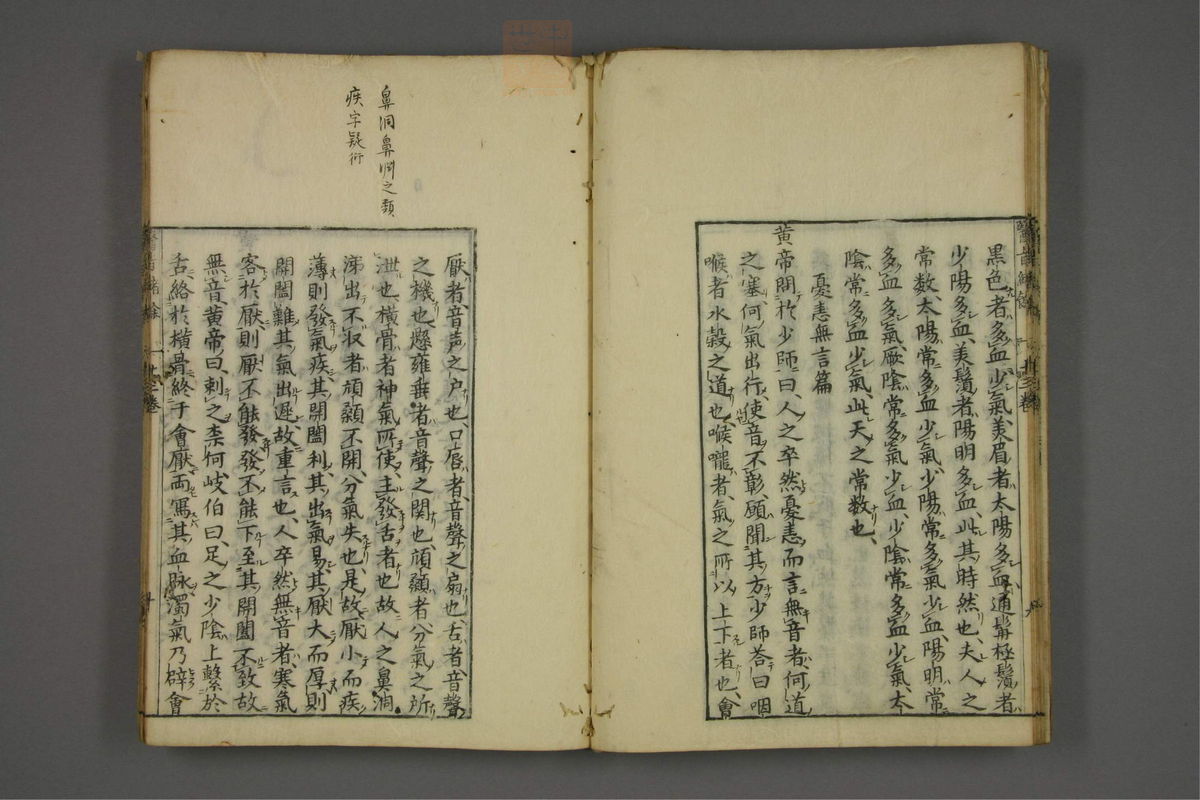 黒色者、多血少氣、美眉者、太陽多血、通髯極鬚者
少陽多血、美鬚者、陽明多血、此其時然也、夫人之
常数、太陽常多血少氣、少陽常多氣少血、陽明常
多血多氣、厥陰常多氣少血、少陰常多血少氣、太
陰常多血少氣、此天之常数也、
憂恚無言篇
黃帝問於少師曰、人之卒然憂恚而言無音者、何道
之塞、何氣出行、使音不彰、願聞其方、少師荅曰咽
喉者水穀之道也、喉嚨者、氣之所以上下者也、會
鼻洞鼻渊之類
疾字疑衍
厭者、音声之户也、口唇者、音聲之扇也、舌者、音聲
之機也、懸雍垂者音聲之関也、頏顙者、分氣之所
泄也、横骨者神氣所使、主發舌者也、故人之鼻洞
涕出不収者頏顙不開、分氣失也、是故厭小而疾
薄則發氣疾、其開闔利、其出氣易、其厭大而厚則
開闔難、其氣出遲、故重言也、人卒然無音者、寒氣
客於厭、則厭不能發、發不能下至、其開闔不致、故
無音、黃帝曰、刺之柰何、岐伯曰、足之少陰上繫於
舌、絡於横骨、終于會厭、两寫其血脉、濁氣乃辟、會